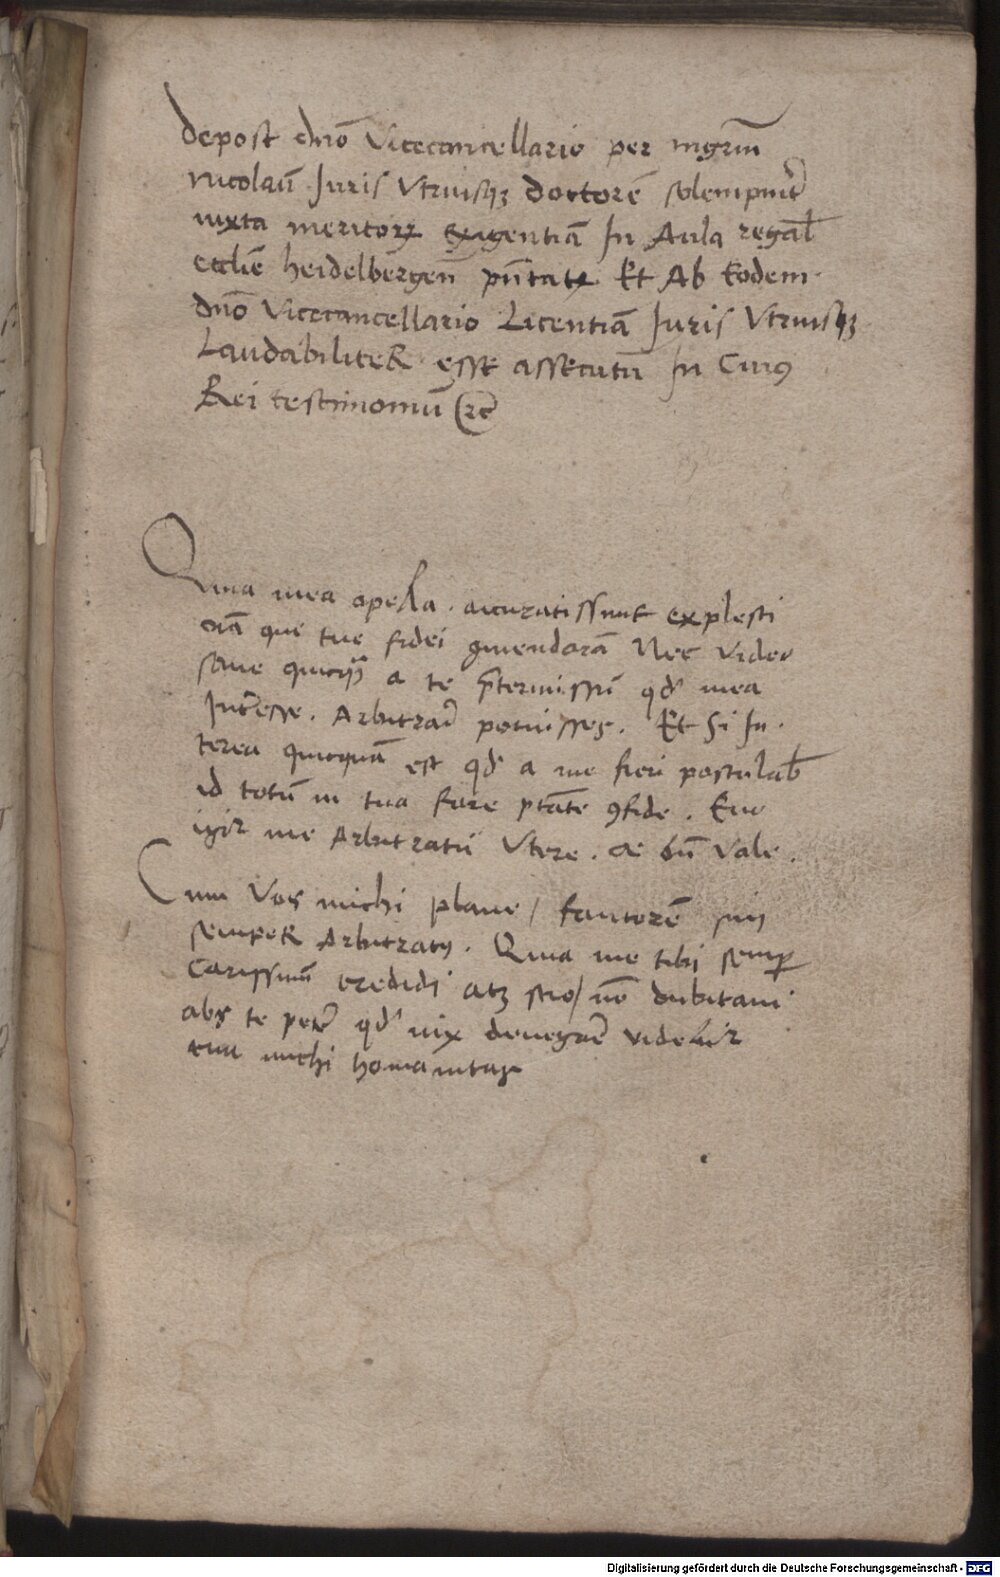 depost dn̄o Vicecancellario per mgrm̄
nicolaū Juris Vtriusqꝫ doctorē solempnit͛
iuxta meritoꝝ exigentiā In Aula regal̄
eccliē heidelbergen̄ pn̄tatꝫ Et Ab Eodem
dn̄o Vicecancellario Licentiā Juris Vtriusqꝫ
LaudabiliteR esse assecutū In Cuiꝯ
Rei testimoniū ⁊c̄
Quia mea opeRa accuratissime explesti
que tue fidei Nec video
sane quicqꝫ a te p̄termissū qd' mea
Int͛esse. Arbitrari potuisses. Et Si In
terea quicquā est qd' a me fieri postulab̄
id totū in tua fore ptāte ꝯfide. Euo
igir me Arbitratū Vtere. Ac bn̄ Vale.
Cum Vos michi plane / fautorē
sempeR Arbitratꝯ. Quia me tibi semꝑ
Carissimū credidi atꝫ scio / nō dubitaui
abs te peter̄ qd' uix denegare videbir
tua michi homanitas